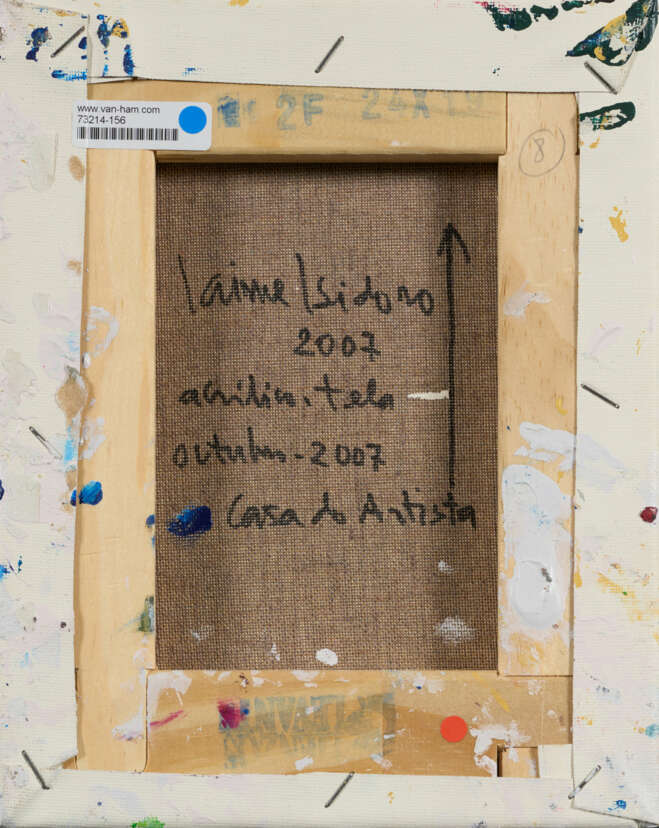 www.van-ham.com
73214-156
2F 24X19
8
Jaime Isidoro
2007
acrílico. tela
outubro-2007
Casa do Artista